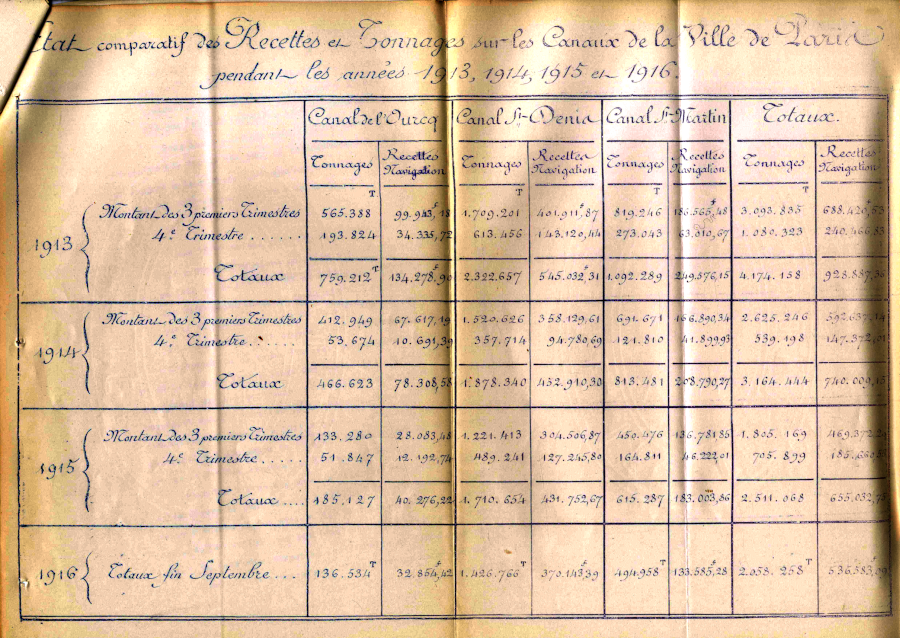 Etat comparatif des Recettes et Tonnages sur les Canaux de la Ville de Paris
pendant les années 1913, 1914, 1915 et 1916.
Canal de l'Ourcq Canal St-Denis Canal St-Martin Totaux.
Tonnages Recettes Navigation Tonnages Recettes Navigation Tonnages Recettes Navigation Tonnages Recettes Navigation
1913
Montant des 3 premiers Trimestres 565.388 99.943,18 1.709.201 401.911,87 819.246 186.565,48 3.093.835 688.420,53
4e Trimestre ...... 193.824 34.335,72 613.456 143.120,44 273.043 63.010,67 1.080.323 240.466,83
Totaux 759.212 134.278,90 2.322.657 545.032,31 1.092.289 249.576,15 4.174.158 928.887,36
1914
Montant des 3 premiers Trimestres 412.949 67.617,19 1.520.626 358.129,61 691.671 166.890,34 2.625.246 592.637,14
4e Trimestre ...... 53.674 10.691,39 357.714 94.780,69 121.810 41.899,93 539.198 147.372,01
Totaux 466.623 78.308,58 1.878.340 452.910,30 813.481 208.790,27 3.164.444 740.009,15
1915
Montant des 3 premiers Trimestres 133.280 28.083,48 1.221.413 304.506,87 450.476 136.781,85 1.805.169
4e Trimestre ..... 51.847 12.192,74 489.241 127.245,80 164.811 46.222,01 705.899
Totaux .... 185.127 40.276,22 1.710.654 431.752,67 615.287 183.003,86 2.511.068
1916
Totaux fin Septembre ... 136.534 32.854,42 1.426.766 370.143,39 494.958 133.585,28 2.058.258 536.583,09